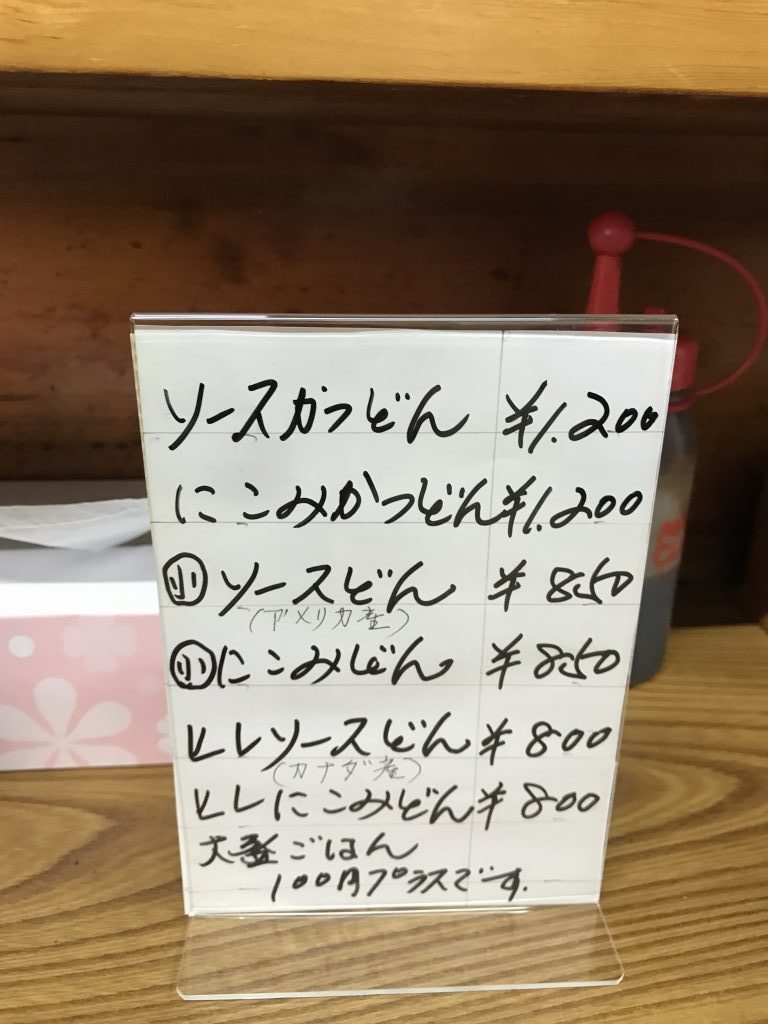 ソースかつどん ¥1.200
にこみかつどん ¥1.200
㊙ソースどん ¥850
(アメリカ産)
小にこみどん ¥850
ヒレソースどん ¥800
(カナダ産)
ヒレにこみどん ¥800
大盛ごはん
100円プラスです.